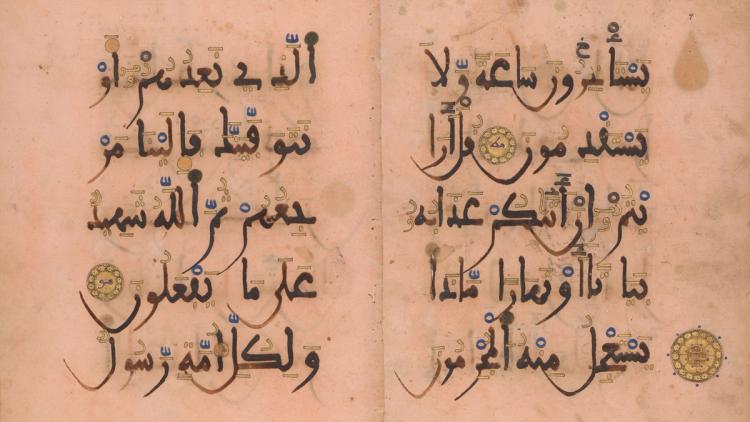 يستأخرون ساعة ولا
يستقدمون قل أرأ
يتم إن أتيكم عذابه
بياتا أو نهارا ماذا
يستعجل منه المجرمون
الذي نعدهم أو
نتوفينك فإلينا مر
جعهم ثم الله شهيد
على ما يفعلون
ولكل أمة رسول